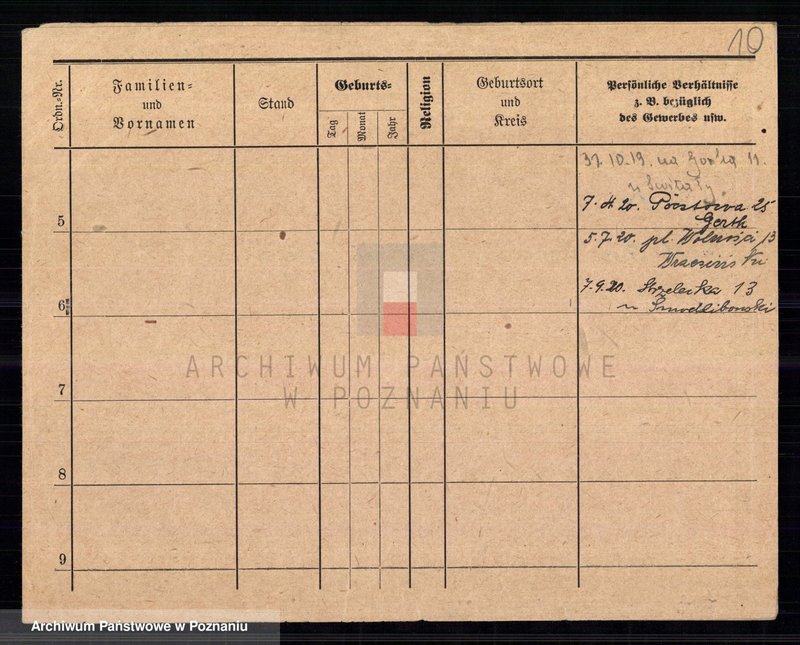 10
Ordn.-Nr.
Familien-
und
Vornamen
Stand
Geburts-
Tag
Monat
Jahr
Religion
Geburtsort
und
Kreis
Persönliche Verhältnisse
z. B. bezüglich
des Gewerbes usw.
10.19. na
5
7. 20. Pocztowa 25
Gerth
5.7.20. pl. Wolności 13
6
7.9.20. Strzelecka 13
u Smodlibowski
ARCHIWUM PAŃSTWOWE
W POZNANIU
7
8
9
Archiwum Państwowe w Poznaniu